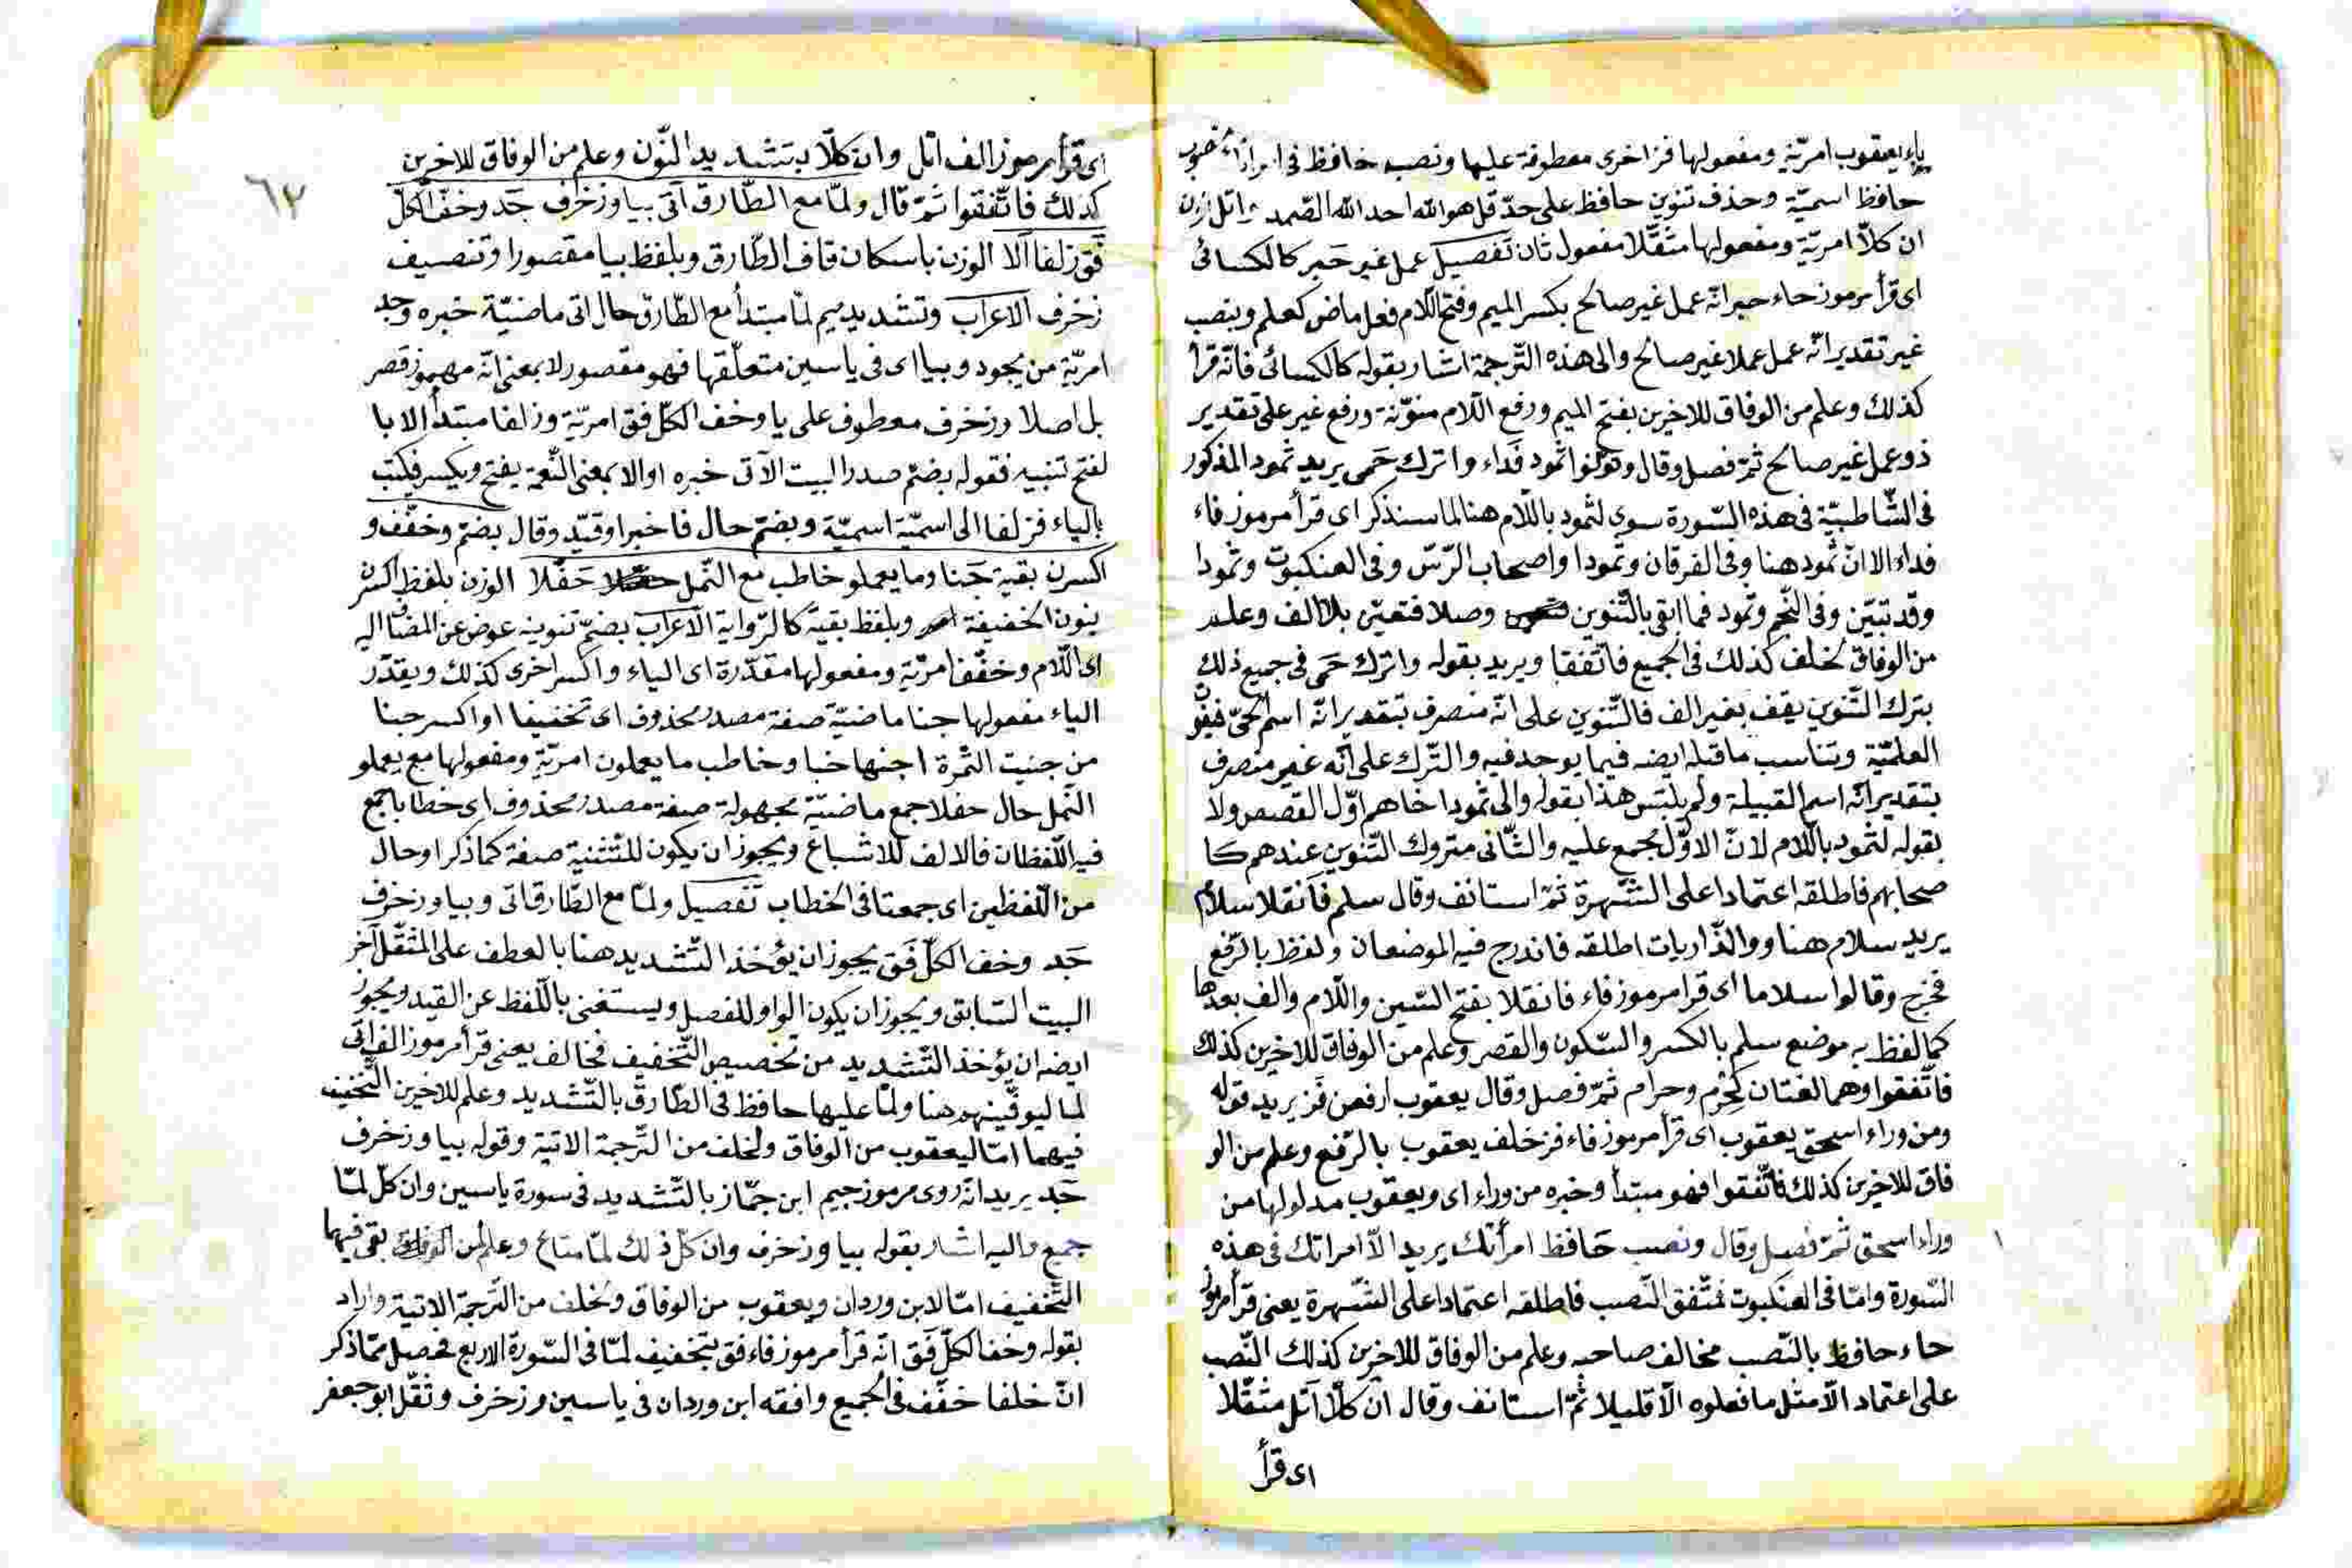 ياء يعقوب امريّة ومفعولها فز اخرى معطوفة عليها ونصب حافظ فى امراتك نصب
حافظ اسميّة وحذف تنوين حافظ على حدّ قل هو الله احد الله الصّمد واتل ان
ان كلّا امريّة ومفعولها مثقّلا مفعول ثان تفصيل عمل غير حَبر كالكسائى
اى قرأ مرموز حاء حبر انّه عمل غير صالح بكسر الميم وفتح اللّام فعل ماض كعلم وبنصب
غير تقدير انّه عمل عملا غير صالح والى هذه التّرجمة اشار بقوله كالكسائى فانّه قرأ
كذلك وعلم من الوفاق للاخرين بفتح الميم ورفع اللّام منوّنة ورفع غير على تقدير
ذو عمل غير صالح ثمّ فصل وقال ونوّنوا ثمود فَداء واترك حَمى يريد ثمود المذكور
فى الشّاطبيّة فى هذه السّورة سوى لثمود باللّام هنا لما سنذكر اى قرأ مرموز فاء
فداء الا انّ ثمود هنا وفى الفرقان وثمودا واصحاب الرّسّ وفى العنكبوت وثمودا
وقد تبيّن وفى النّجم وثمود فما ابقى بالتّنوين وصلا فتعيّن بلا الف وعلم
من الوفاق لخلف كذلك فى الجميع فاتّفقا ويريد بقوله واترك حَمى فى جميع ذلك
بترك التّنوين يقف بغير الف فالتّنوين على انّه منصرف بتقدير انّه اسم الحىّ فيفو
العلميّة وتناسب ماقبله ايضه فيما يوجد فيه والتّرك على انّه غير منصرف
بتقدير انّه اسم القبيلة ولم يلبّس هذا بقوله والى ثمودا خاهم اوّل القصص ولا
بقوله لثمود باللّام لانّ الاوّل مجمع عليه والثّانى متروك التّنوين عندهم كا
صحابهم فاطلقه اعتمادا على الشّهرة ثمّ استانف وقال سلم فانقلا سلام
يريد سلام هنا ووالذّاريات اطلقه فاندرج فيه الموضعان ولفظ بالرّفع
فخرج وقالوا سلاما اى قرا مرموز فاء فانقلا بفتح السّين واللّام والف بعدها
كما لفظ به موضع سلم بالكسر والسّكون والقصر وعلم من الوفاق للاخرين كذلك
فاتّفقوا وهما لغتان كحِرْم وحرام ثمّ فصل وقال يعقوب ارفعن فَز يريد قوله
ومن وراء اسحق يعقوب اى قرأ مرموز فاء فز خلف يعقوب بالرّفع وعلم من الو
فاق للاخرين كذلك فاتّفقوا فهو مبتدأ وخبره من وراء اى ويعقوب مدلولها من
وراء اسحق ثمّ فصل وقال ونصب حَافظ امرأتك يريد الّا امراتك فى هذه
السّورة وامّا فى العنكبوت فمتّفق النّصب فاطلقه اعتمادا على الشّهرة يعنى قرأ مرموز
حاء حافظ بالنّصب مخالف صاحبه وعلم من الوفاق للاخرين كذلك النّصب
على اعتماد الّا مثل مافعلوه الّا قليلا ثمّ استانف وقال ان كلّا اَتل مثقّلا
اى قرأ
٦٣
اى قرأ مرموز الف اتل وان كلّا بتشديد النّون وعلم من الوفاق للاخرين
كذلك فاتّفقوا ثمّ قال ولمّا مع الطّارق اَتى بيا وزخرف جَد وخفّ الكلّ
فَق زلفا الّا الوزن باسكان قاف الطّارق وبلفظ بيا مقصورا وتنصيف
زخرف الاعراب وتشديد ميم لمّا مبتدأ مع الطّارق حال اتى ماضيّة خبره وجد
امريّة من يجود وبيا اى فى ياسين متعلّقها فهو مقصور لا بمعنى انّه مهموز قصر
بل اصلا وزخرف معطوف على يا وخف الكلّ فق امريّة وزلفا مبتدأ الا با
لفتح تنبيه فقوله بضمّ صدر البيت الآتى خبره او الا بمعنى النّعمة يفتح ويكسر فيكتب
بالياء فزلفا الى اسميّة اسميّة وبضمّ حال فاخبرا وقيّد وقال بضمّ وخفّف و
اكسرن بقية جَنا وما يعملو خاطب مع النّمل حَفّلا الوزن بلفظ اكسرن
بنون الخفيفة وبلفظ بقية كالرّواية الاعراب بضمّ تنوينه عوض عن المضاف اليه
اى اللّام وخفّف امريّة ومفعولها مقدّرة اى الياء واكسر اخرى كذلك ويقدّر
الياء مفعولها جنا ماضيّة صفة مصدر محذوف اى تخفيفا او اكسر جنا
من جنيت الثّمرة اجنيها خبا وخاطب ما يعملون امريّة ومفعولها مع يعملو
النّمل حال حفلا جمع ماضيّة مجهولة صفة مصدر محذوف اى خطابا جمع
فيه اللّفظان فالالف للاشباع ويجوز ان يكون للتّثنية صفة كما ذكر او حال
من اللّفظين اى جمعتا فى الخطاب تفصيل ولمّا مع الطّارق اتى وبيا وزخرف
جَد وخف الكلّ فَق يجوز ان يؤخذ التّشديد هنا بالعطف على المثقّل آخر
البيت السّابق ويجوز ان يكون الواو للفصل ويستغنى باللّفظ عن القيد ويجوز
ايضه ان يؤخذ التّشديد من تخصيص التّخفيف فخالف يعنى قرأ مرموز الف اتى
لما ليوفّينهم هنا ولمّا عليها حافظ فى الطّارق بالتّشديد وعلم للاخرين التّخفيف
فيهما امّا ليعقوب من الوفاق ولخلف من التّرجمة الاتية وقوله بيا وزخرف
جَد يريد انّه روى مرموز جيم ابن جمّاز بالتّشديد فى سورة ياسين وان كلّ لمّا
جميع واليه اشار بقوله بيا وزخرف وان كلّ ذلك لمّا متاع وعلم لمن بقى فيهما
التّخفيف امّا لابن وردان ويعقوب من الوفاق ولخلف من التّرجمة الاتية واراد
بقوله وخف الكلّ فَق انّه قرأ مرموز فاء فق بتخفيف لمّا فى السّورة الاربع فحصل ممّا ذكر
انّ خلفا خفّف فى الجميع وافقه ابن وردان فى ياسين وزخرف وثقّل ابو جعفر